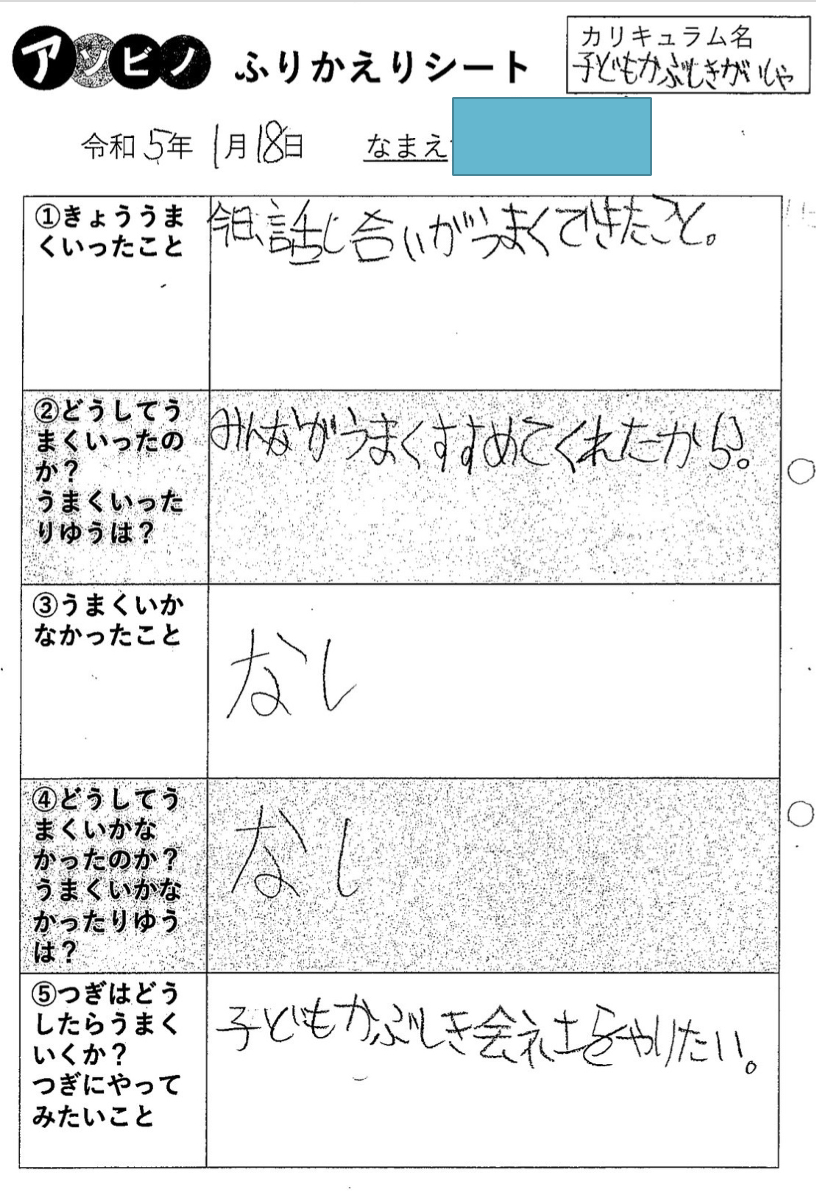 アソビノ ふりかえりシート
カリキュラム名
子どもかぶしきがいしゃ
令和5年 1月18日 なまえ
①きょううま
くいったこと
今日、話し合いがうまくできたこと。
②どうしてう
まくいったの
か?
うまくいった
りゆうは?
みんながうまくすすめてくれたから。
③うまくいか
なかったこと
なし
④どうしてう
まくいかな
かったのか?
うまくいかな
かったりゆう
は?
なし
⑤つぎはどう
したらうまく
いくか?
つぎにやって
みたいこと
子どもかぶしき会社をやりたい。